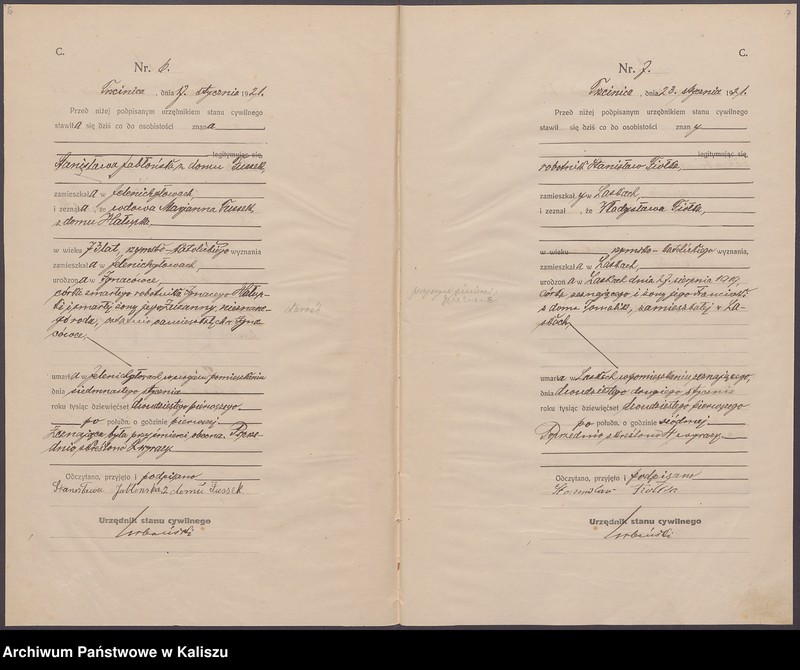 6
C.
Nr. 6.
Trcinica, dnia 17 stycznia 1921.
Przed niżej podpisanym urzędnikiem stanu cywilnego
stawiła się dziś co do osobistości znana
legitymując się,
Stanisława Jabłońska z domu Tussek,
zamieszkała w Jelenichgłowach,
i zeznała, że wdowa Marjanna Tussek,
z domu
w wieku 73 lat, rzymsko-katolickiego wyznania
zamieszkała w Jelenichgłowach,
urodzona w Ignacówce,
córka zmarłego robotnika Ignacego
i zmarłej żony jego Tekli
rodu, ostatnio zamieszkałych w Igna-
cówce,
umarła w Jelenichgłowach w swojem pomieszkaniu
dnia siedmnastego stycznia
roku tysiąc dziewięćset dwudziestego pierwszego
po połudn. o godzinie pierwszej
Zeznająca była przy śmierci obecna. Poprze-
dnio skreślono 2 wyrazy.
Odczytano, przyjęto i podpisano
Stanisława Jabłonska z domu Tussek
Urzędnik stanu cywilnego
Urbański
7
C.
Nr. 7.
Trcinica, dnia 23. stycznia 1921.
Przed niżej podpisanym urzędnikiem stanu cywilnego
stawił się dziś co do osobistości znany
legitymując się,
robotnik Stanisław Fiołka,
zamieszkały w Laskach,
i zeznał, że Władysława Fiołka,
w wieku rzymsko-katolickiego wyznania,
zamieszkała w Laskach,
urodzona w Laskach dnia 27. sierpnia 1919,
córka zeznającego i żony jego Franciszki
z domu Tomalik, zamieszkałej w La-
skach,
umarła w Laskach w pomieszkaniu zeznającego,
dnia dwudziestego drugiego stycznia
roku tysiąc dziewięćset dwudziestego pierwszego
po połudn. o godzinie siódmej
Poprzednio skreślono 4 wyrazy.
Odczytano, przyjęto i podpisano
Stanisław Fiołka
Urzędnik stanu cywilnego
Urbański
Archiwum Państwowe w Kaliszu